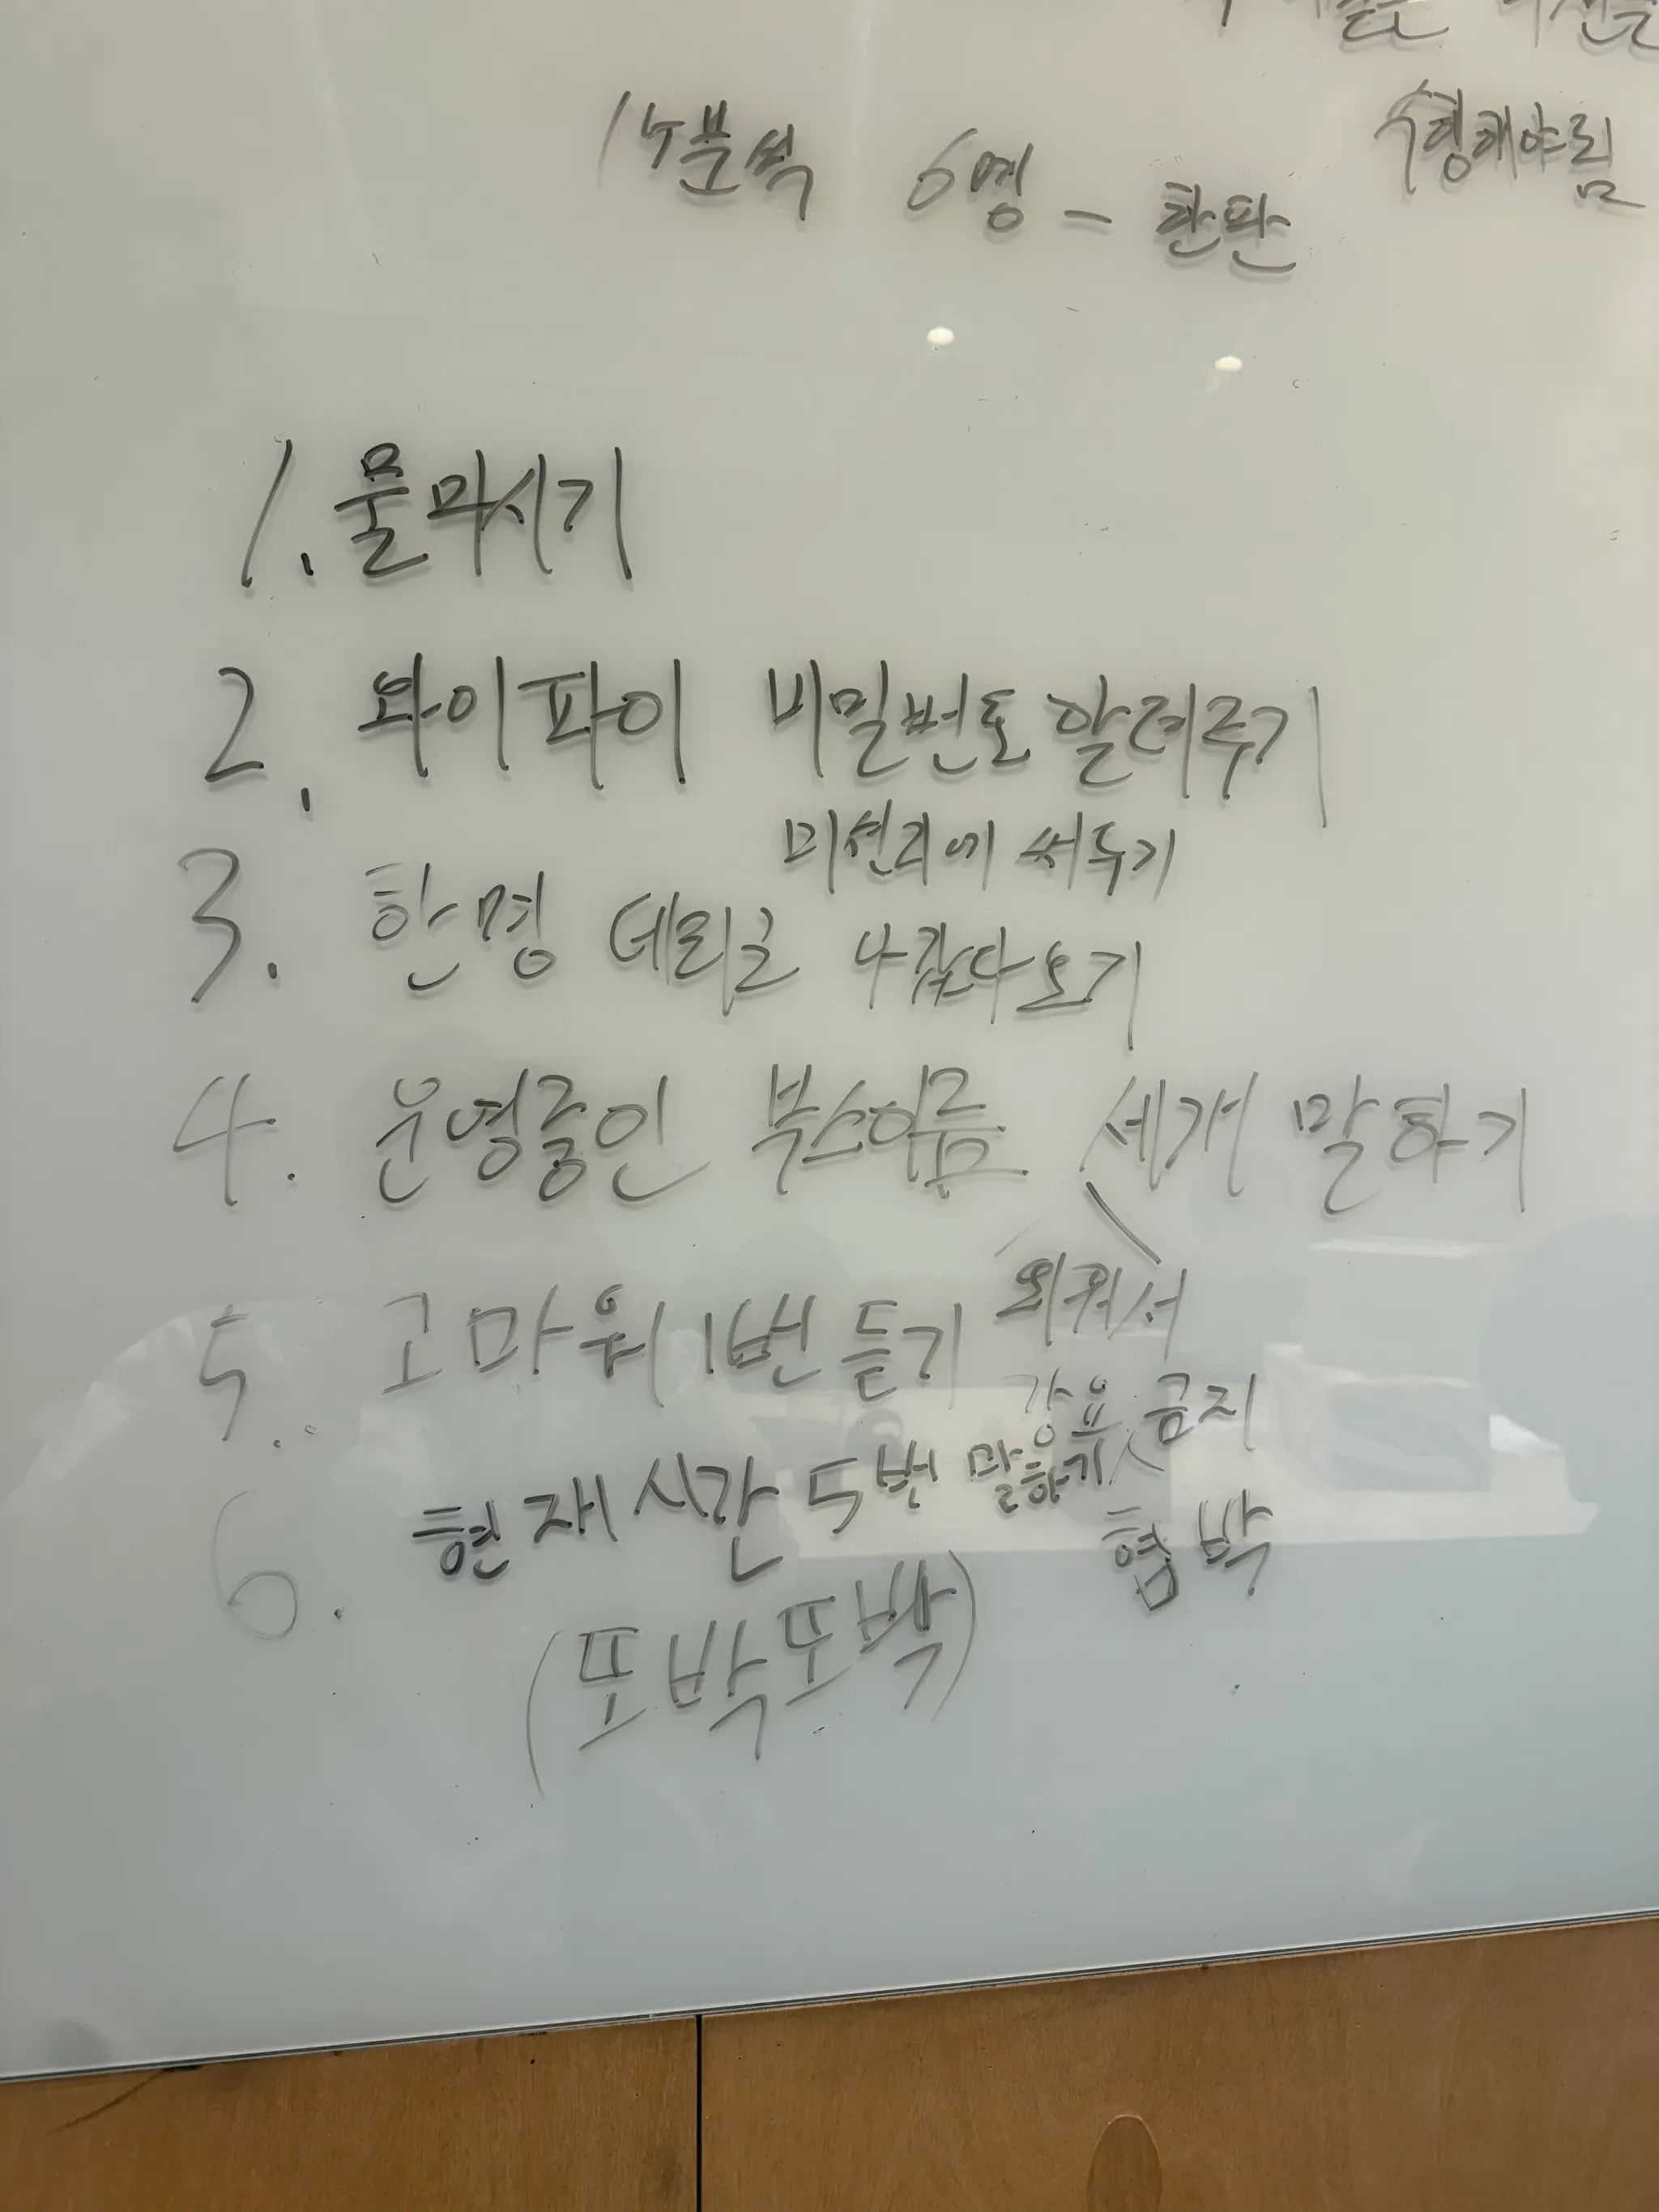 15분씩 6명 - 한판
수행해야됨
1. 물마시기
2. 와이파이 비밀번호 알려주기
미션지에 써두기
3. 한명 데리고 나갔다오기
4. 운영중인 부스이름 세개 말하기
외워서
5. 고마워 1번 듣기
강요 금지
협박
6. 현재시간 5번 말하기
(또박또박)